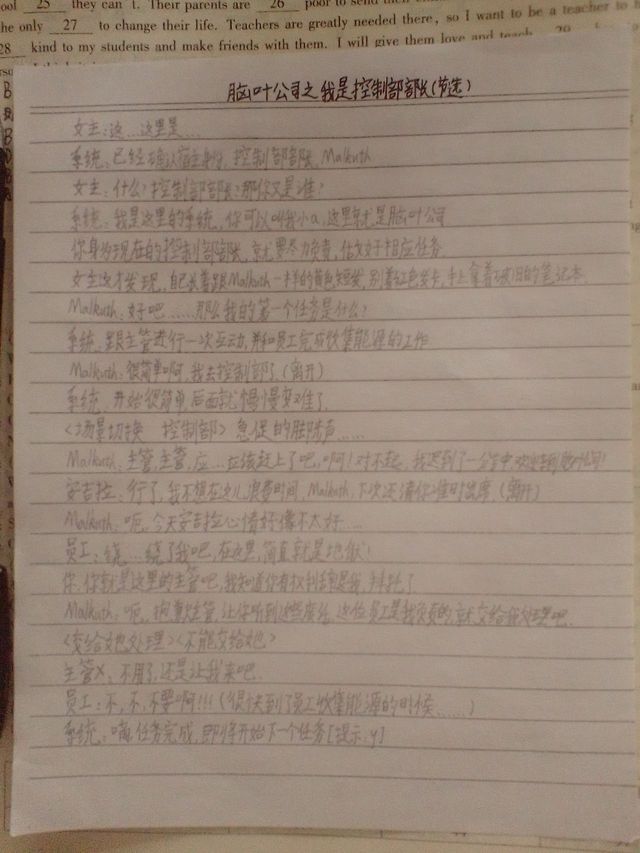 ool 25 they can't. Their parents are 26 poor to send their
he only 27 to change their life. Teachers are greatly needed there, so I want to be a teacher to h
28 kind to my students and make friends with them. I will give them love and teach 29
脑叶公司之我是控制部部长(节选)
女主:这…这里是…
系统:已经确认宿主身份,控制部部长,Malkuth
女主:什么?控制部部长?那你又是谁?
系统:我是这里的系统,你可以叫我小a,这里就是脑叶公司
你身为现在的控制部部长,就要尽力负责,估文好相应任务
女主这才发现,自己长着跟Malkuth一样的黄色短发,别着红色发卡,手上拿着破旧的笔记本
Malkuth:好吧……那么我的第一个任务是什么?
系统:跟主管进行一次互动,并和员工完成收集能源的工作
Malkuth:很简单啊,我去控制部了(离开)
系统:开始很简单,后面就慢慢变难了
<场景切换 控制部> 急促的脚步声……
Malkuth:主管,主管,应…应该赶上了吧,啊!对不起,我迟到了一分钟,欢迎来到脑叶公司!
安吉拉:行了,我不想在这儿浪费时间,Malkuth,下次还请你准时出席,(离开)
Malkuth:呃,今天安吉拉心情好像不太好…
员工:绕…绕了我吧,在这里,简直就是地狱!
你,你就是这里的主管吧,我知道你有权利的是我,拜托了
Malkuth:呃,抱歉主管,让你听到这些废话,这位员工是我负责的,就交给我处理吧
<交给她处理><不能交给她>
主管X:不用了,还是让我来吧
员工:不,不,不要啊!!!(很快到了员工收集能源的时候……)
系统:嘀,任务完成,即将开始下一个任务[提示:y]